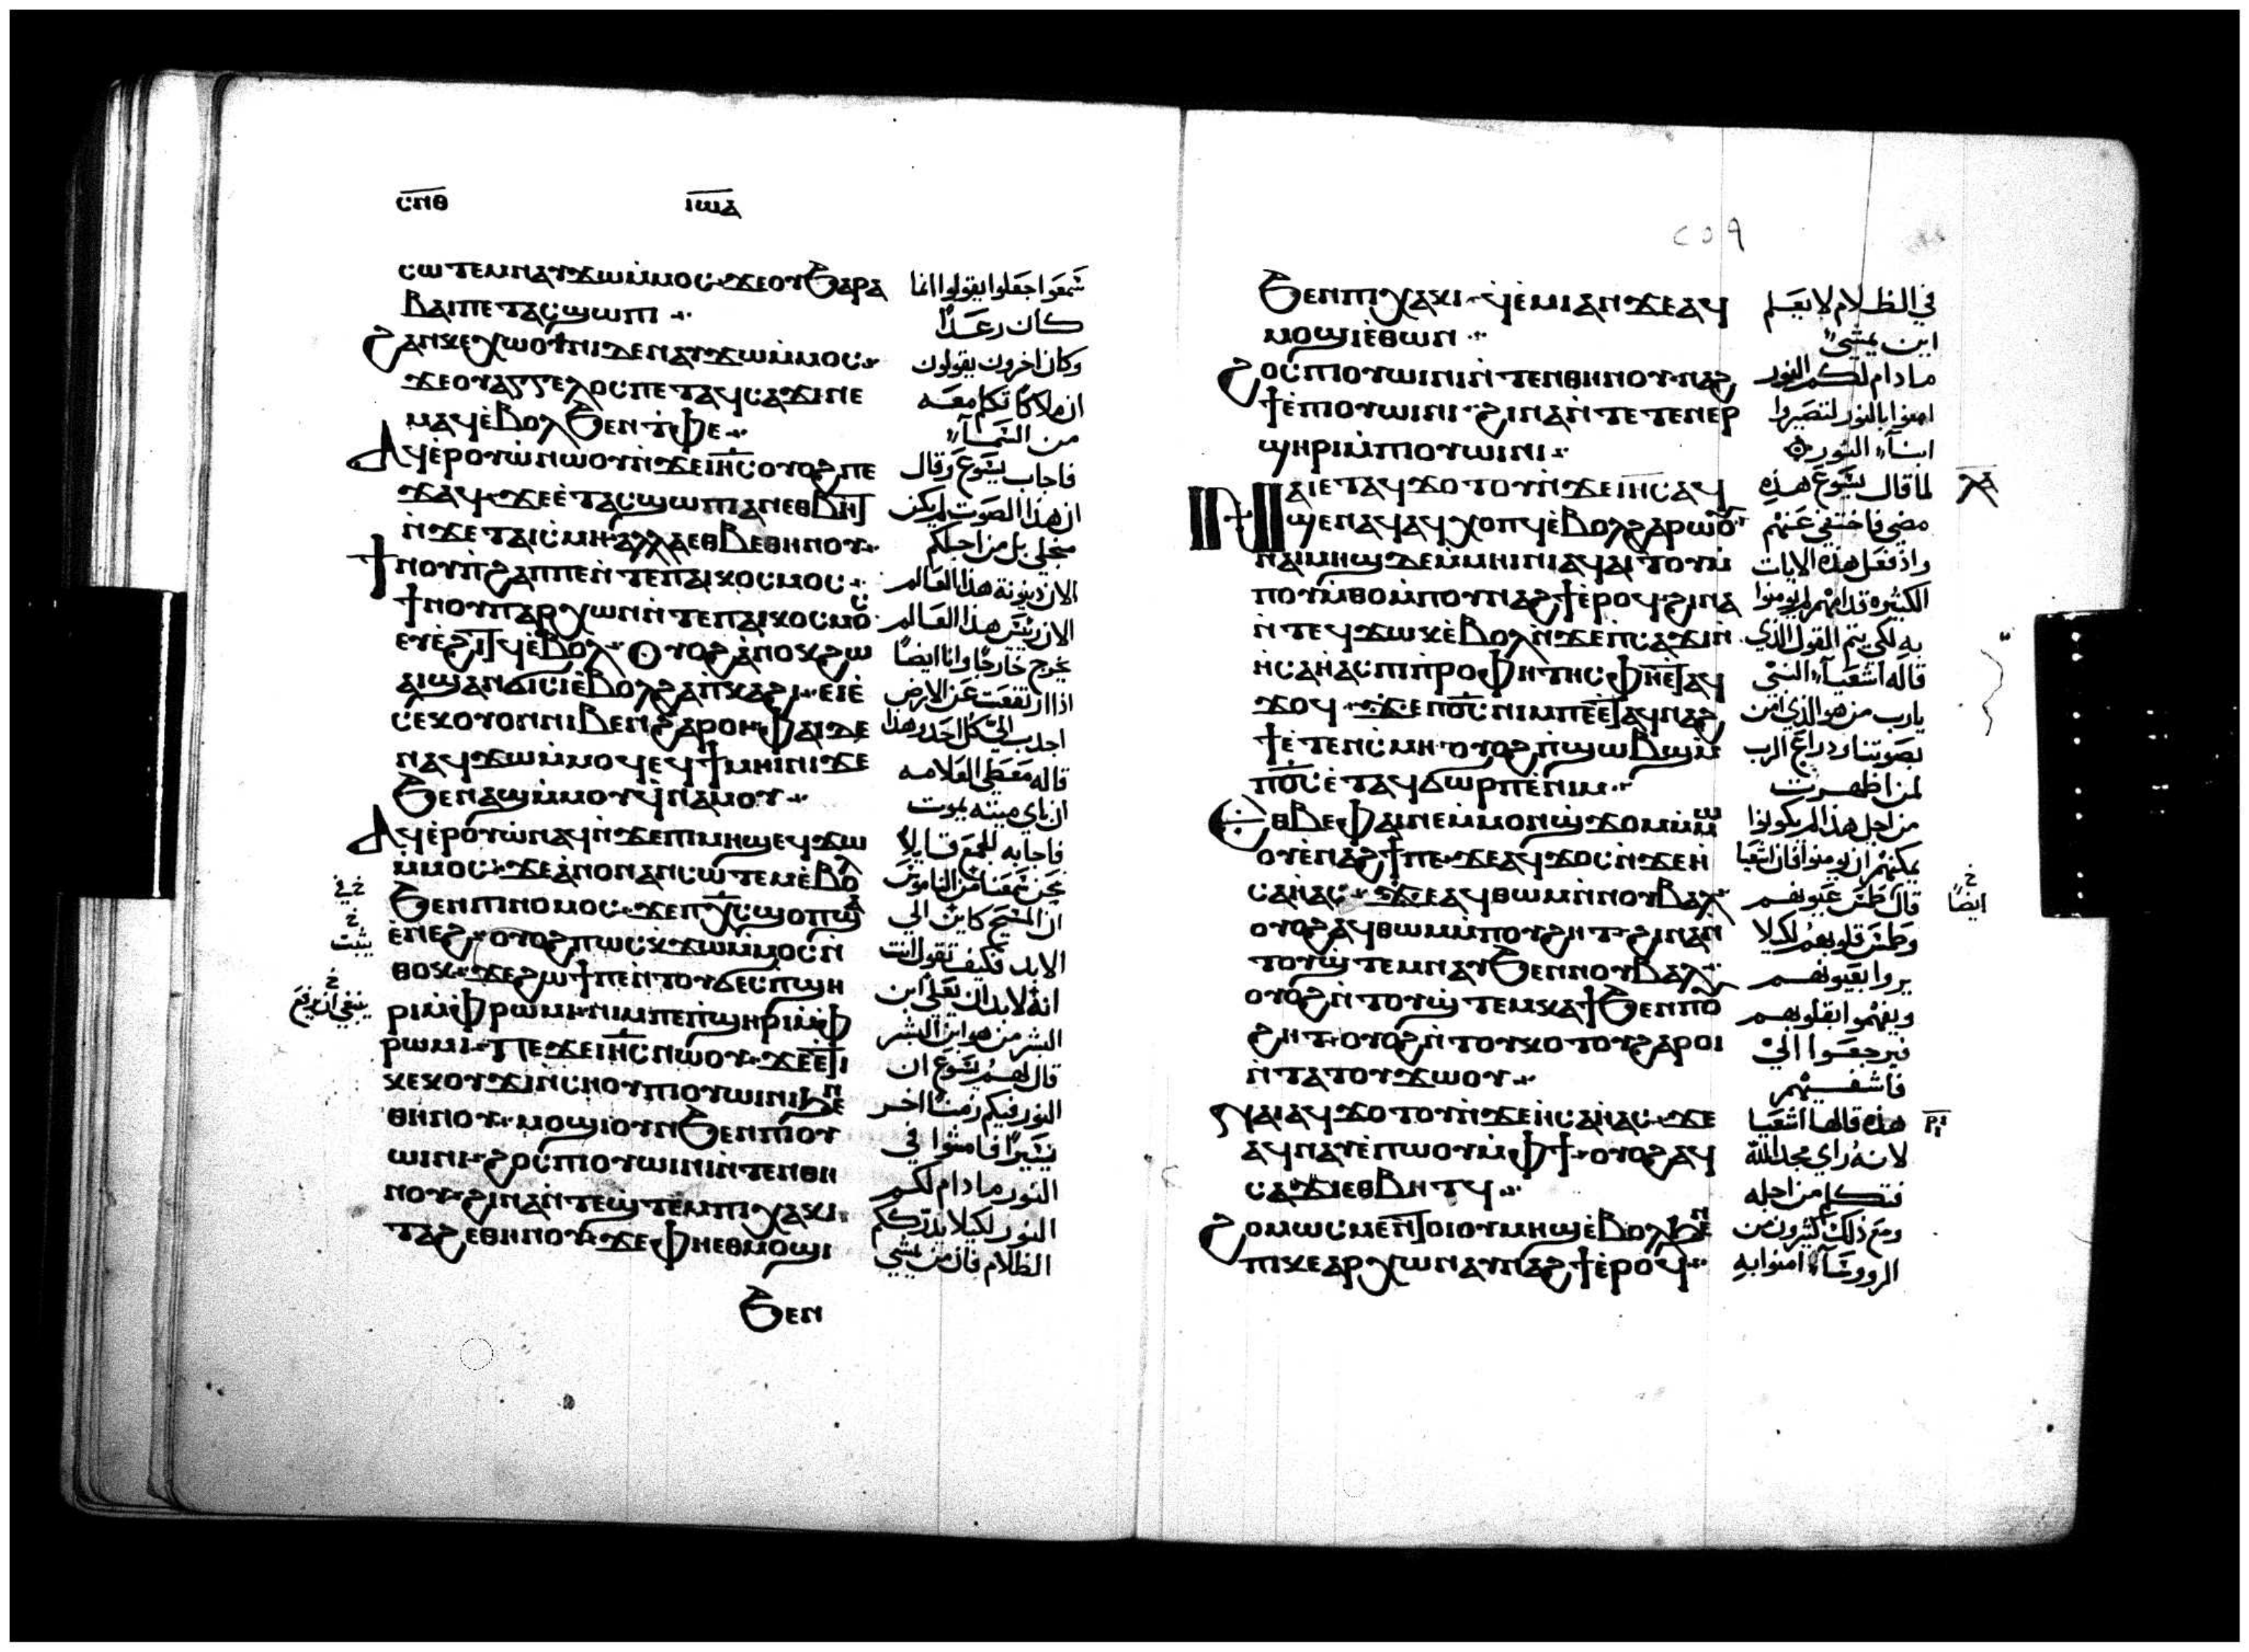 ⲥⲡⲑ ⲓⲱⲁ
ⲥⲱⲧⲉⲙⲛⲁⲩϫⲱⲙ̀ⲙⲟⲥ·ϫⲉⲟⲩϧⲁⲣⲁ
ⲃⲁⲓⲡⲉⲧⲁⲥϣⲱⲡⲓ
ϩⲁⲛⲕⲉⲭⲱⲟⲩⲛⲓⲇⲉⲛⲁⲩϫⲱⲙ̀ⲙⲟⲥ
ϫⲉⲟⲩⲁⲅⲅⲉⲗⲟⲥⲡⲉⲧⲁϥⲥⲁϫⲓⲛⲉ
ⲙⲁϥⲉ̀ⲃⲟⲗϧⲉⲛⲧ̀ⲫⲉ
ⲁϥⲉ̀ⲣⲟⲩⲱ̀ⲛⲱⲟⲩⲛ̀ϫⲉⲓⲏ̅ⲥⲟⲩⲟϩⲡⲉ
ϫⲁϥ·ϫⲉⲉ̀ⲧⲁⲥϣⲱⲡⲓⲁⲛⲉⲑⲃⲏϯ
ⲛ̀ϫⲉⲧⲁⲓⲥ̀ⲙⲏ·ⲁⲗⲗⲁⲉⲑⲃⲉⲑⲏⲛⲟⲩ
ϯⲛⲟⲩⲡ̀ϩⲁⲡⲡⲉⲛ̀ⲧⲉⲡⲁⲓⲕⲟⲥⲙⲟⲥ
ϯⲛⲟⲩⲡⲁⲣⲭⲱⲛⲛ̀ⲧⲉⲡⲁⲓⲕⲟⲥⲙⲟⲥ
ⲉⲩⲉ̀ϩⲓⲧϥⲉ̀ⲃⲟⲗ·ⲟⲩⲟϩⲁ̀ⲛⲟⲕϩⲱ
ⲁⲓϣⲁⲛϭⲓⲥⲓⲉ̀ⲃⲟⲗϩⲁⲡ̀ⲕⲁϩⲓ·ⲉⲓⲉ̀
ⲥⲉⲕⲟⲩⲟⲛⲛⲓⲃⲉⲛϩⲁⲣⲟⲓ·ⲫⲁⲓⲇⲉ
ⲛⲁϥϫⲱⲙ̀ⲙⲟϥⲉϥϯⲙⲏⲓⲛⲓϫⲉ
ϧⲉⲛⲁϣⲙ̀ⲙⲟⲩϥ̀ⲛⲁⲙⲟⲩ
ⲁϥⲉ̀ⲣⲟⲩⲱ̀ⲛⲁϥⲛ̀ϫⲉⲡⲓⲙⲏϣⲉⲩϫⲱ
ⲙ̀ⲙⲟⲥ·ϫⲉⲁ̀ⲛⲟⲛⲁⲛⲥⲱⲧⲉⲙⲉ̀ⲃⲟⲗ
ϧⲉⲛⲡⲓⲛⲟⲙⲟⲥ·ϫⲉⲡⲭ̅ⲥϣⲟⲡϣⲁ
ⲉ̀ⲛⲉϩ·ⲟⲩⲟϩⲡⲱⲥⲕ̀ϫⲱⲙ̀ⲙⲟⲥⲛ̀
ⲑⲟⲕ·ϫⲉϩⲱϯⲡⲉⲛ̀ⲧⲟⲩϭⲉⲥⲡ̀ϣⲏ
ⲣⲓⲙ̀ⲫⲣⲱⲙⲓ·ⲛⲓⲙⲡⲉⲡ̀ϣⲏⲣⲓⲙ̀ⲫ
ⲣⲱⲙⲓ·ⲡⲉϫⲉⲓⲏ̅ⲥⲛⲱⲟⲩ·ϫⲉⲉ̀ⲧⲓ
ⲕⲉⲕⲟⲩϫⲓⲛ̀ⲥⲏⲟⲩⲡⲓⲟⲩⲱⲓⲛⲓϧⲉⲛ
ⲑⲏⲛⲟⲩ·ⲙⲟϣⲓⲟⲩⲛϧⲉⲛⲡⲓⲟⲩ
ⲱⲓⲛⲓ·ϩⲟⲥⲡⲓⲟⲩⲱⲓⲛⲓⲛ̀ⲧⲉⲛⲑⲏ
ⲛⲟⲩ·ϩⲓⲛⲁⲛ̀ⲧⲉϣ̀ⲧⲉⲙⲡⲓⲭⲁⲕⲓ
ⲧⲁϩⲉⲑⲏⲛⲟⲩ·ϫⲉⲫⲏⲉⲑⲙⲟϣⲓ
ϧⲉⲛ
شمعوا جعلوا يقولوا انما
كان رعدًا
وكان اخرون يقولون
ان ملاكًا تكلم معه
من السمآء
فاجاب يسوع وقال
ان هذا الصوت لم يكن
من اجلي بل من اجلكم
الان دينونة هذا العالم
الان رئيس هذا العالم
يخرج خارجًا وانا ايضًا
اذا ارتفعت عن الارض
اجذب اليّ كل احد وهذا
قاله معطي العلامه
ان باي ميته يموت
فاجابه الجمع قايلًا
نحن سمعنا من الناموس
ان المسيح كاين الي
الابد فكيف تقول انت
انه لابد ان يعلي ابن
البشر من هو ابن البشر
قال لهم يسوع ان
النور فيكم زمنًا اخر
يسيرًا فامشوا في
النور ما دام لكم
النور لكيلا يدرككم
الظلام فان من يمشي
خ في
خ
يثبت
خ
ينبغي ان يرتفع
٢٥٩
ϧⲉⲛⲡⲓⲭⲁⲕⲓ·ϥ̀ⲉ̀ⲙⲓⲁⲛϫⲉⲁϥ
ⲙⲟϣⲓⲉ̀ⲑⲱⲛ
ϩⲟⲥⲡⲓⲟⲩⲱⲓⲛⲓⲛ̀ⲧⲉⲛⲑⲏⲛⲟⲩ·ⲛⲁϩ
ϯⲉ̀ⲡⲓⲟⲩⲱⲓⲛⲓ·ϩⲓⲛⲁⲛ̀ⲧⲉⲧⲉⲛⲉⲣ
ϣⲏⲣⲓⲙ̀ⲡⲓⲟⲩⲱⲓⲛⲓ
ⲛⲁⲓⲉⲧⲁϥϫⲟⲧⲟⲩⲛ̀ϫⲉⲓⲏ̅ⲥⲁϥ
ϣⲉⲛⲁϥⲁϥⲭⲟⲡϥⲉ̀ⲃⲟⲗϩⲁⲣⲱⲟⲩ
ⲛⲁⲓⲙⲏϣⲇⲉⲙ̀ⲙⲏⲓⲛⲓⲁϥⲁⲓⲧⲟⲩⲙ̀
ⲡⲟⲩⲙ̀ⲑⲟⲙ̀ⲡⲟⲩⲛⲁϩϯⲉ̀ⲣⲟϥ·ϩⲓⲛⲁ
ⲛ̀ⲧⲉϥϫⲱⲕⲉ̀ⲃⲟⲗⲛ̀ϫⲉⲡ̀ⲥⲁϫⲓⲛ̀
ⲏ̀ⲥⲁⲏ̀ⲁⲥⲡⲓⲡ̀ⲣⲟⲫⲏⲧⲏⲥⲫⲏⲉ̀ⲧⲁϥ
ϫⲟϥ·ϫⲉⲡⲟ̅ⲥⲛⲓⲙⲡⲉⲉ̀ⲧⲁϥⲛⲁϩ
ϯⲉ̀ⲧⲉⲛⲥ̀ⲙⲏ·ⲟⲩⲟϩⲡ̀ϣⲱⲃϣⲙ̀
ⲡⲟ̅ⲥⲉ̀ⲧⲁϥϭⲱⲣⲡⲉ̀ⲛⲓⲙ
ⲉⲑⲃⲉⲫⲁⲓⲛⲉⲙ̀ⲙⲟⲛϣϫⲟⲙⲙ̀ⲙⲱ
ⲟⲩⲉ̀ⲛⲁϩϯⲡⲉ·ϫⲉⲁϥϫⲟⲥⲛ̀ϫⲉⲏ̀
ⲥⲁⲏ̀ⲁⲥ·ϫⲉⲁϥⲑⲱⲙⲛ̀ⲛⲟⲩⲃⲁⲗ
ⲟⲩⲟϩⲁϥⲑⲱⲙⲙ̀ⲡⲟⲩϩⲏⲧ·ϩⲓⲛⲁⲛ̀
ⲧⲟⲩϣ̀ⲧⲉⲙⲛⲁⲩϧⲉⲛⲛⲟⲩⲃⲁⲗ
ⲟⲩⲟϩⲛ̀ⲧⲟⲩϣ̀ⲧⲉⲙⲕⲁϯϧⲉⲛⲡⲟⲩ
ϩⲏⲧ·ⲟⲩⲟϩⲛ̀ⲧⲟⲩⲕⲟⲧⲟⲩϩⲁⲣⲟⲓ
ⲛ̀ⲧⲁⲧⲟⲩϫⲱⲟⲩ
ⲛⲁⲓⲁϥϫⲟⲧⲟⲩⲛ̀ϫⲉⲏ̀ⲥⲁⲏ̀ⲁⲥ·ϫⲉ
ⲁϥⲛⲁⲩⲉ̀ⲡⲱⲟⲩⲙ̀ⲫϯ·ⲟⲩⲟϩⲁϥ
ⲥⲁϫⲓⲉⲑⲃⲏⲧϥ
ϩⲟⲙⲱⲥⲙⲉⲛⲧⲟⲓⲟⲩⲙⲏϣⲉ̀ⲃⲟⲗϧⲉⲛ
ⲡⲓⲕⲉⲁⲣⲭⲱⲛⲁⲩⲛⲁϩϯⲉ̀ⲣⲟϥ
في الظلام لا يعلم
اين يمشي
ما دام لكم النور
امنوا بالنور لتصيروا
ابنآء النور
لما قال يسوع هذه
مضي فاختفي عنهم
واذ فعل هذه الايات
الكثيره قدامهم لم يومنوا
به لكي يتم القول الذي
قاله اشعيآء النبي
يارب من هو الذي امن
بصوتنا وذراع الرب
لمن اظهرت
من اجل هذا لم يكونوا
يمكنهم ان يومنوا فان اشعيا
قال طمس عيونهم
وطمس قلوبهم لكيلا
يروا بعيونهم
ويفهموا بقلوبهم
فيرجعوا اليّ
فاشفيهم
هذه قالها اشعيا
لانه راي مجد الله
فتكلم من اجله
ومع ذلك كثيرون من
الروسآء امنوا به
ⲗ̅ⲁ
خ
ايضًا